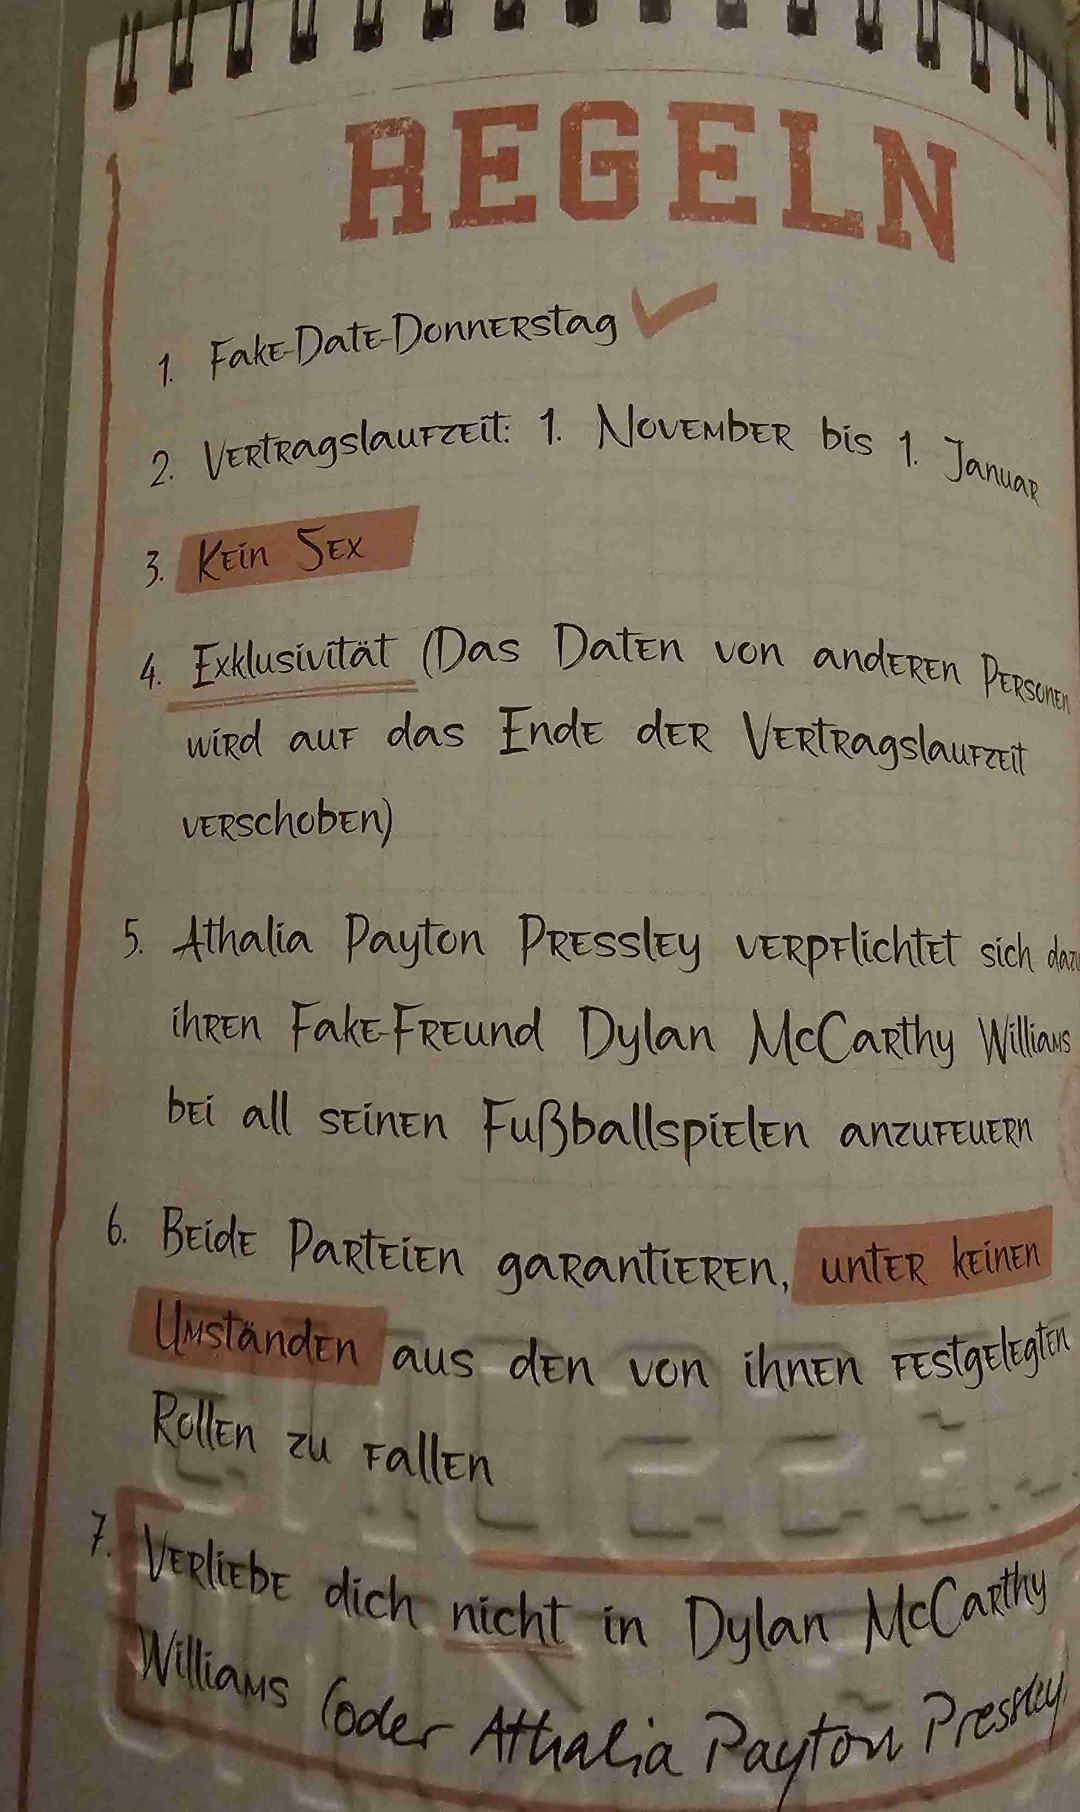 REGELN
1. Fake-Date-Donnerstag
2. Vertragslaufzeit: 1. November bis 1. Januar
3. Kein Sex
4. Exklusivität (Das Daten von anderen Personen
wird auf das Ende der Vertragslaufzeit
verschoben)
5. Athalia Payton Pressley verpflichtet sich dazu
ihren Fake-Freund Dylan McCarthy Williams
bei all seinen Fußballspielen anzufeuern
6. Beide Parteien garantieren, unter keinen
Umständen aus den von ihnen festgelegten
Rollen zu fallen
7. Verliebe dich nicht in Dylan McCarthy
Williams (oder Athalia Payton Pressley